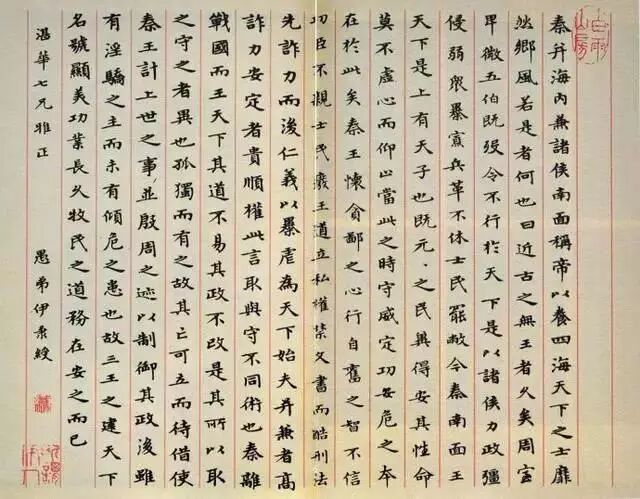 秦并海內兼諸侯南面稱帝以養四海天下之士靡
然鄉風若是者何也曰近古之無王者久矣周室
卑微五伯既歿令不行於天下是以諸侯力政彊
侵弱眾暴寡兵革不休士民罷敝今秦南面王
天下是上有天子也既元〻之民冀得安其性命
莫不虛心而仰上當此之時守威定功安危之本
在於此矣秦王懷貪鄙之心行自奮之智不信
功臣不親士民廢王道立私權禁文書而酷刑法
先詐力而後仁義以暴虐為天下始夫并兼者高
詐力安定者貴順權此言取與守不同術也秦離
戰國而王天下其道不易其政不改是其所以取
之守之者異也孤獨而有之故其亡可立而待借使
秦王計上世之事並殷周之迹以制御其政後雖
有淫驕之主而未有傾危之患也故三王之建天下
名號顯美功業長久牧民之道務在安之而已
華七兄雅正
愚弟伊秉綬